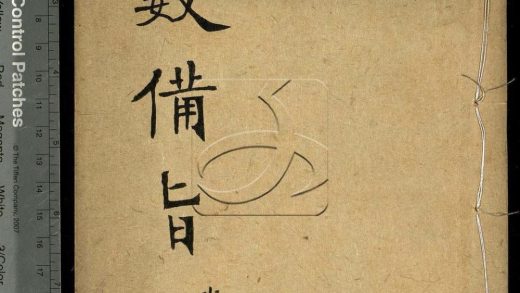 數備旨
Control Patches
© The Tiffen Company, 2007
Red Magenta White 3/Color
8
9
10
11
12
13
14
15
16
17